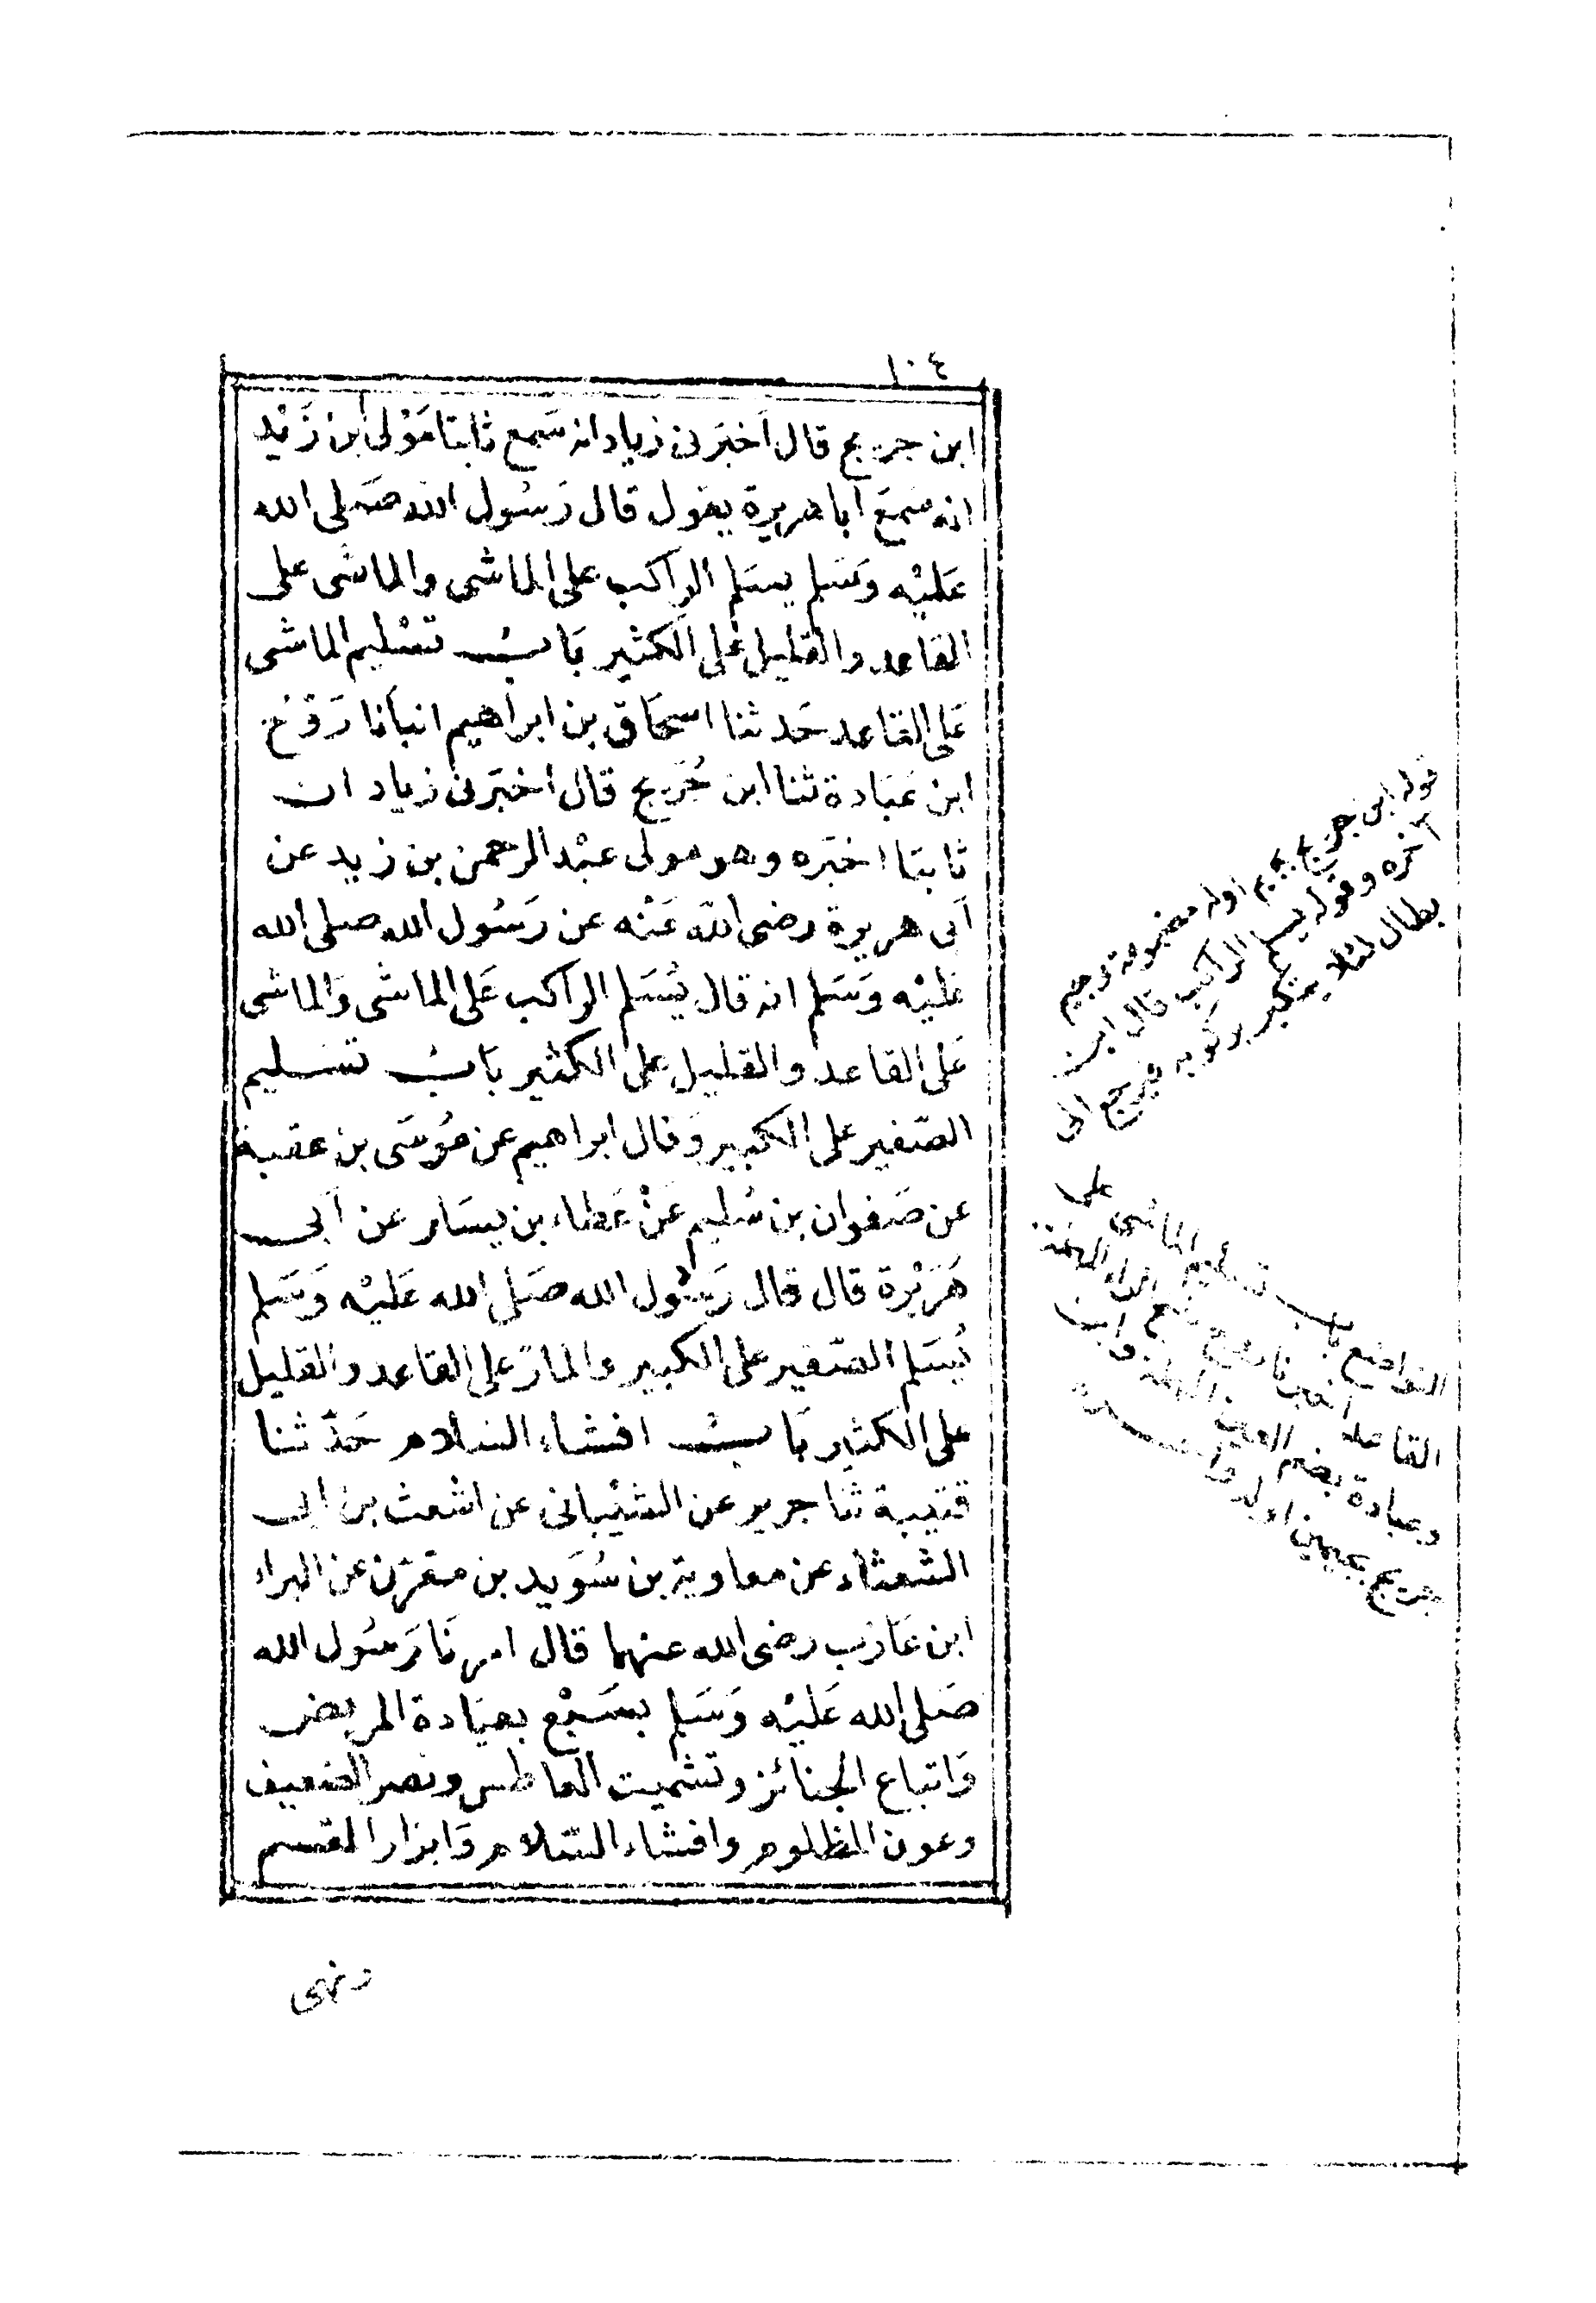 ١٠٤
ابن جريج قال اَخبَرنى زياد انه سَمع ثابتا مَوْلى ابن زَيْد
انه سَمعَ ابا هريرة يقول قال رَسُول الله صَلى الله
عَليْه وَسَلم يسَلم الراكب على الماشى والماشى على
القاعد والقليل على الكثير بَابُ تسْليم الماشى
عَلى القاعد حَدثنا اسحَاق بن ابراهيم انبأنا رَوْح
ابن عبَادة ثنا ابن جُرَيج قال اخبَرنى زياد ان
ثابتا اخبَره وهو مولى عبْد الرحمن بن زيد عن
اَبى هريرة رضى الله عَنْه عن رَسُول الله صلى الله
عَليْه وَسَلم انه قال يُسَلم الراكب عَلى الماشى وَالماشى
عَلى القاعد والقليل على الكثير بَابُ تسَليم
الصّغير على الكبير وَقال ابراهيم عن مُوسَى بن عقبة
عن صَفوان بن سُليم عَنْ عَطاء بن يسَار عن اَبى
هَرَيْرة قال قال رَسُول الله صَلى الله عَليْه وَسَلم
يُسَلم الصّغير على الكبير والمارّ على القاعد والقليل
على الكثير بَابُ افشاء السَلام حَدّثنا
قتيبة ثنا جرير عن الشيْبانى عن اشعث بن ابى
الشعثاء عن معاوية بن سُوَيد بن مقرّن عن البراء
ابن عَازب رضى الله عنهما قال امرنَا رَسُول الله
صَلى الله عَليْه وَسَلم بسَبْع بعيَادة المريض
وَاتباع الجنائز وتشميت العاطس ونصر الضعيف
وعون المظلوم وافشاء السّلام وَابرار المقسم
ونهى
قوله ابن جريج بجيم اوله مضمومة وجيم
آخره وقوله يسلم الراكب قال ابن
بطال لئلا يتكبر بركوبه فيرجع الى
التواضع باب تسليم الماشى على
القاعد روح بفتح الراء المهملة
وعبادة بضم العين المهملة وابن
جريج بجيمين اوله